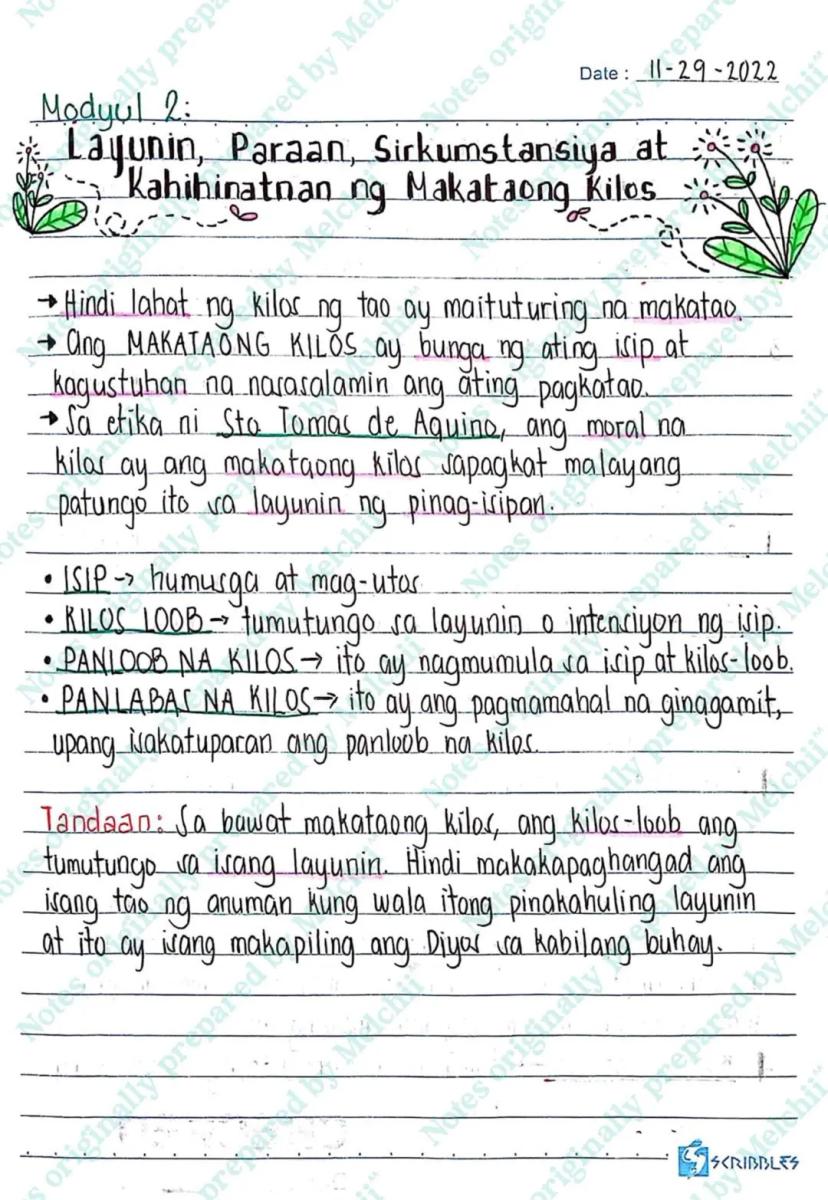 Date : 11-29-2022
Modyul 2:
Layunin, Paraan, Sirkumstansiya at
Kahihinatnan ng Makataong Kilos
→ Hindi lahat ng kilos ng tao ay maituturing na makatao.
→ Ang MAKATAONG KILOS ay bunga ng ating isip at
kagustuhan na nasasalamin ang ating pagkatao.
→ Sa etika ni Sto Tomas de Aquino, ang moral na
kilos ay ang makataong kilos sapagkat malayang
patungo ito sa layunin ng pinag-isipan.
• ISIP → humusga at mag-utos
• KILOS LOOB → tumutungo sa layunin o intensiyon ng isip.
• PANLOOB NA KILOS → ito ay nagmumula sa isip at kilos-loob.
• PANLABAS NA KILOS → ito ay ang pagmamahal na ginagamit,
upang isakatuparan ang panloob na kilos.
Tandaan: Sa bawat makataong kilos, ang kilos-loob ang
tumutungo sa isang layunin. Hindi makakapaghangad ang
isang tao ng anuman kung wala itong pinakahuling layunin
at ito ay isang makapiling ang Diyos sa kabilang buhay.
SCRIBBLES
Notes originally prepared by Melchii"